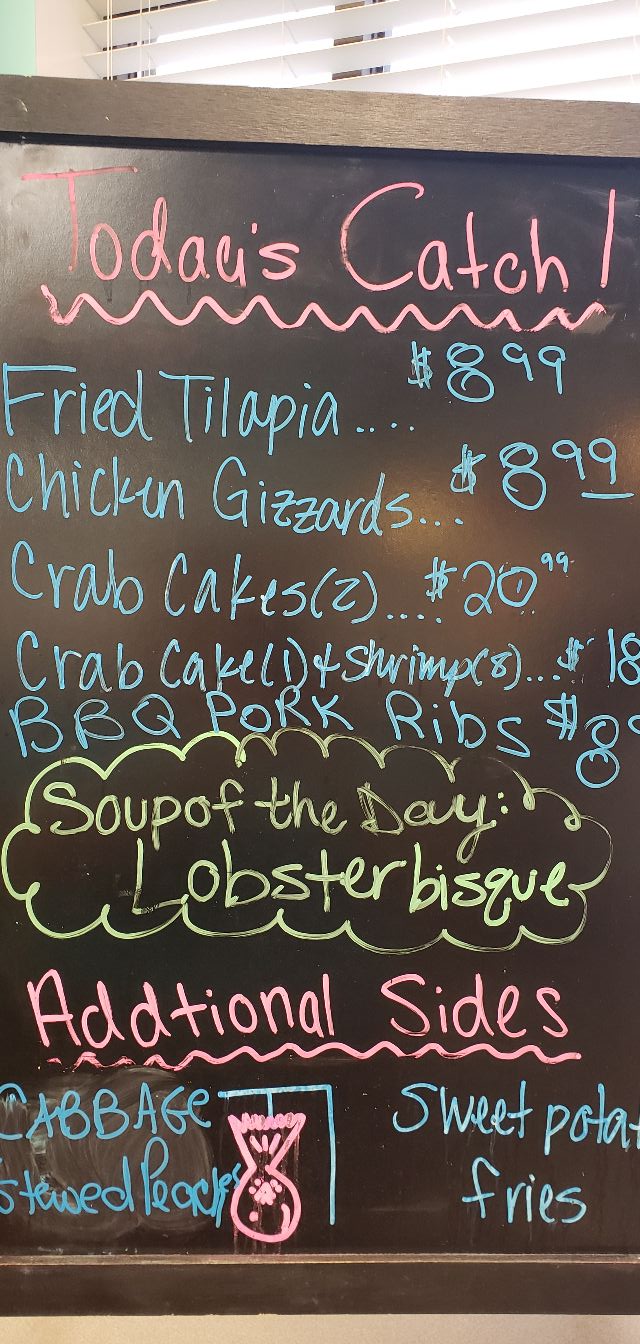 Today's Catch!
Fried Tilapia.... $8.99
Chicken Gizzards... $8.99
Crab Cakes(2).... $20.99
Crab Cake(1)+Shrimp(8)... $18
BBQ PORK Ribs $8
Soup of the Day:
Lobster bisque
Addtional Sides
CABBAGE
Stewed Peaches
Sweet potat
fries